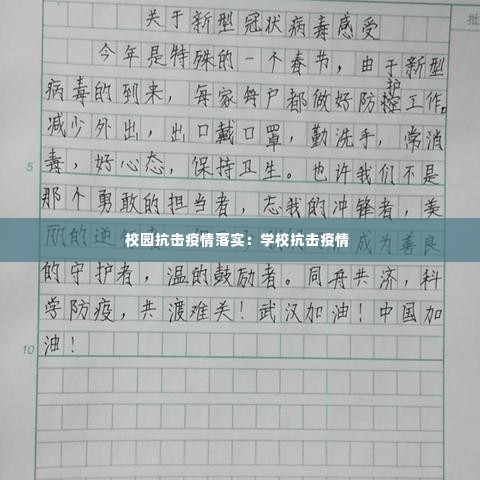 批
关于新型冠状病毒感受
今年是特殊的一个春节，由于新型
病毒的到来，每家每户都做好防护控工作。
减少外出，出口戴口罩，勤洗手，常消
5
毒，好心态，保持卫生。也许我们不是
那个勇敢的担当者，忘我的冲锋者，美
丽的逆
成为善良
校园抗击疫情落实：学校抗击疫情
的守护者，温的鼓励者。同舟共济，科
学防疫，共渡难关！武汉加油！中国加
10
油！